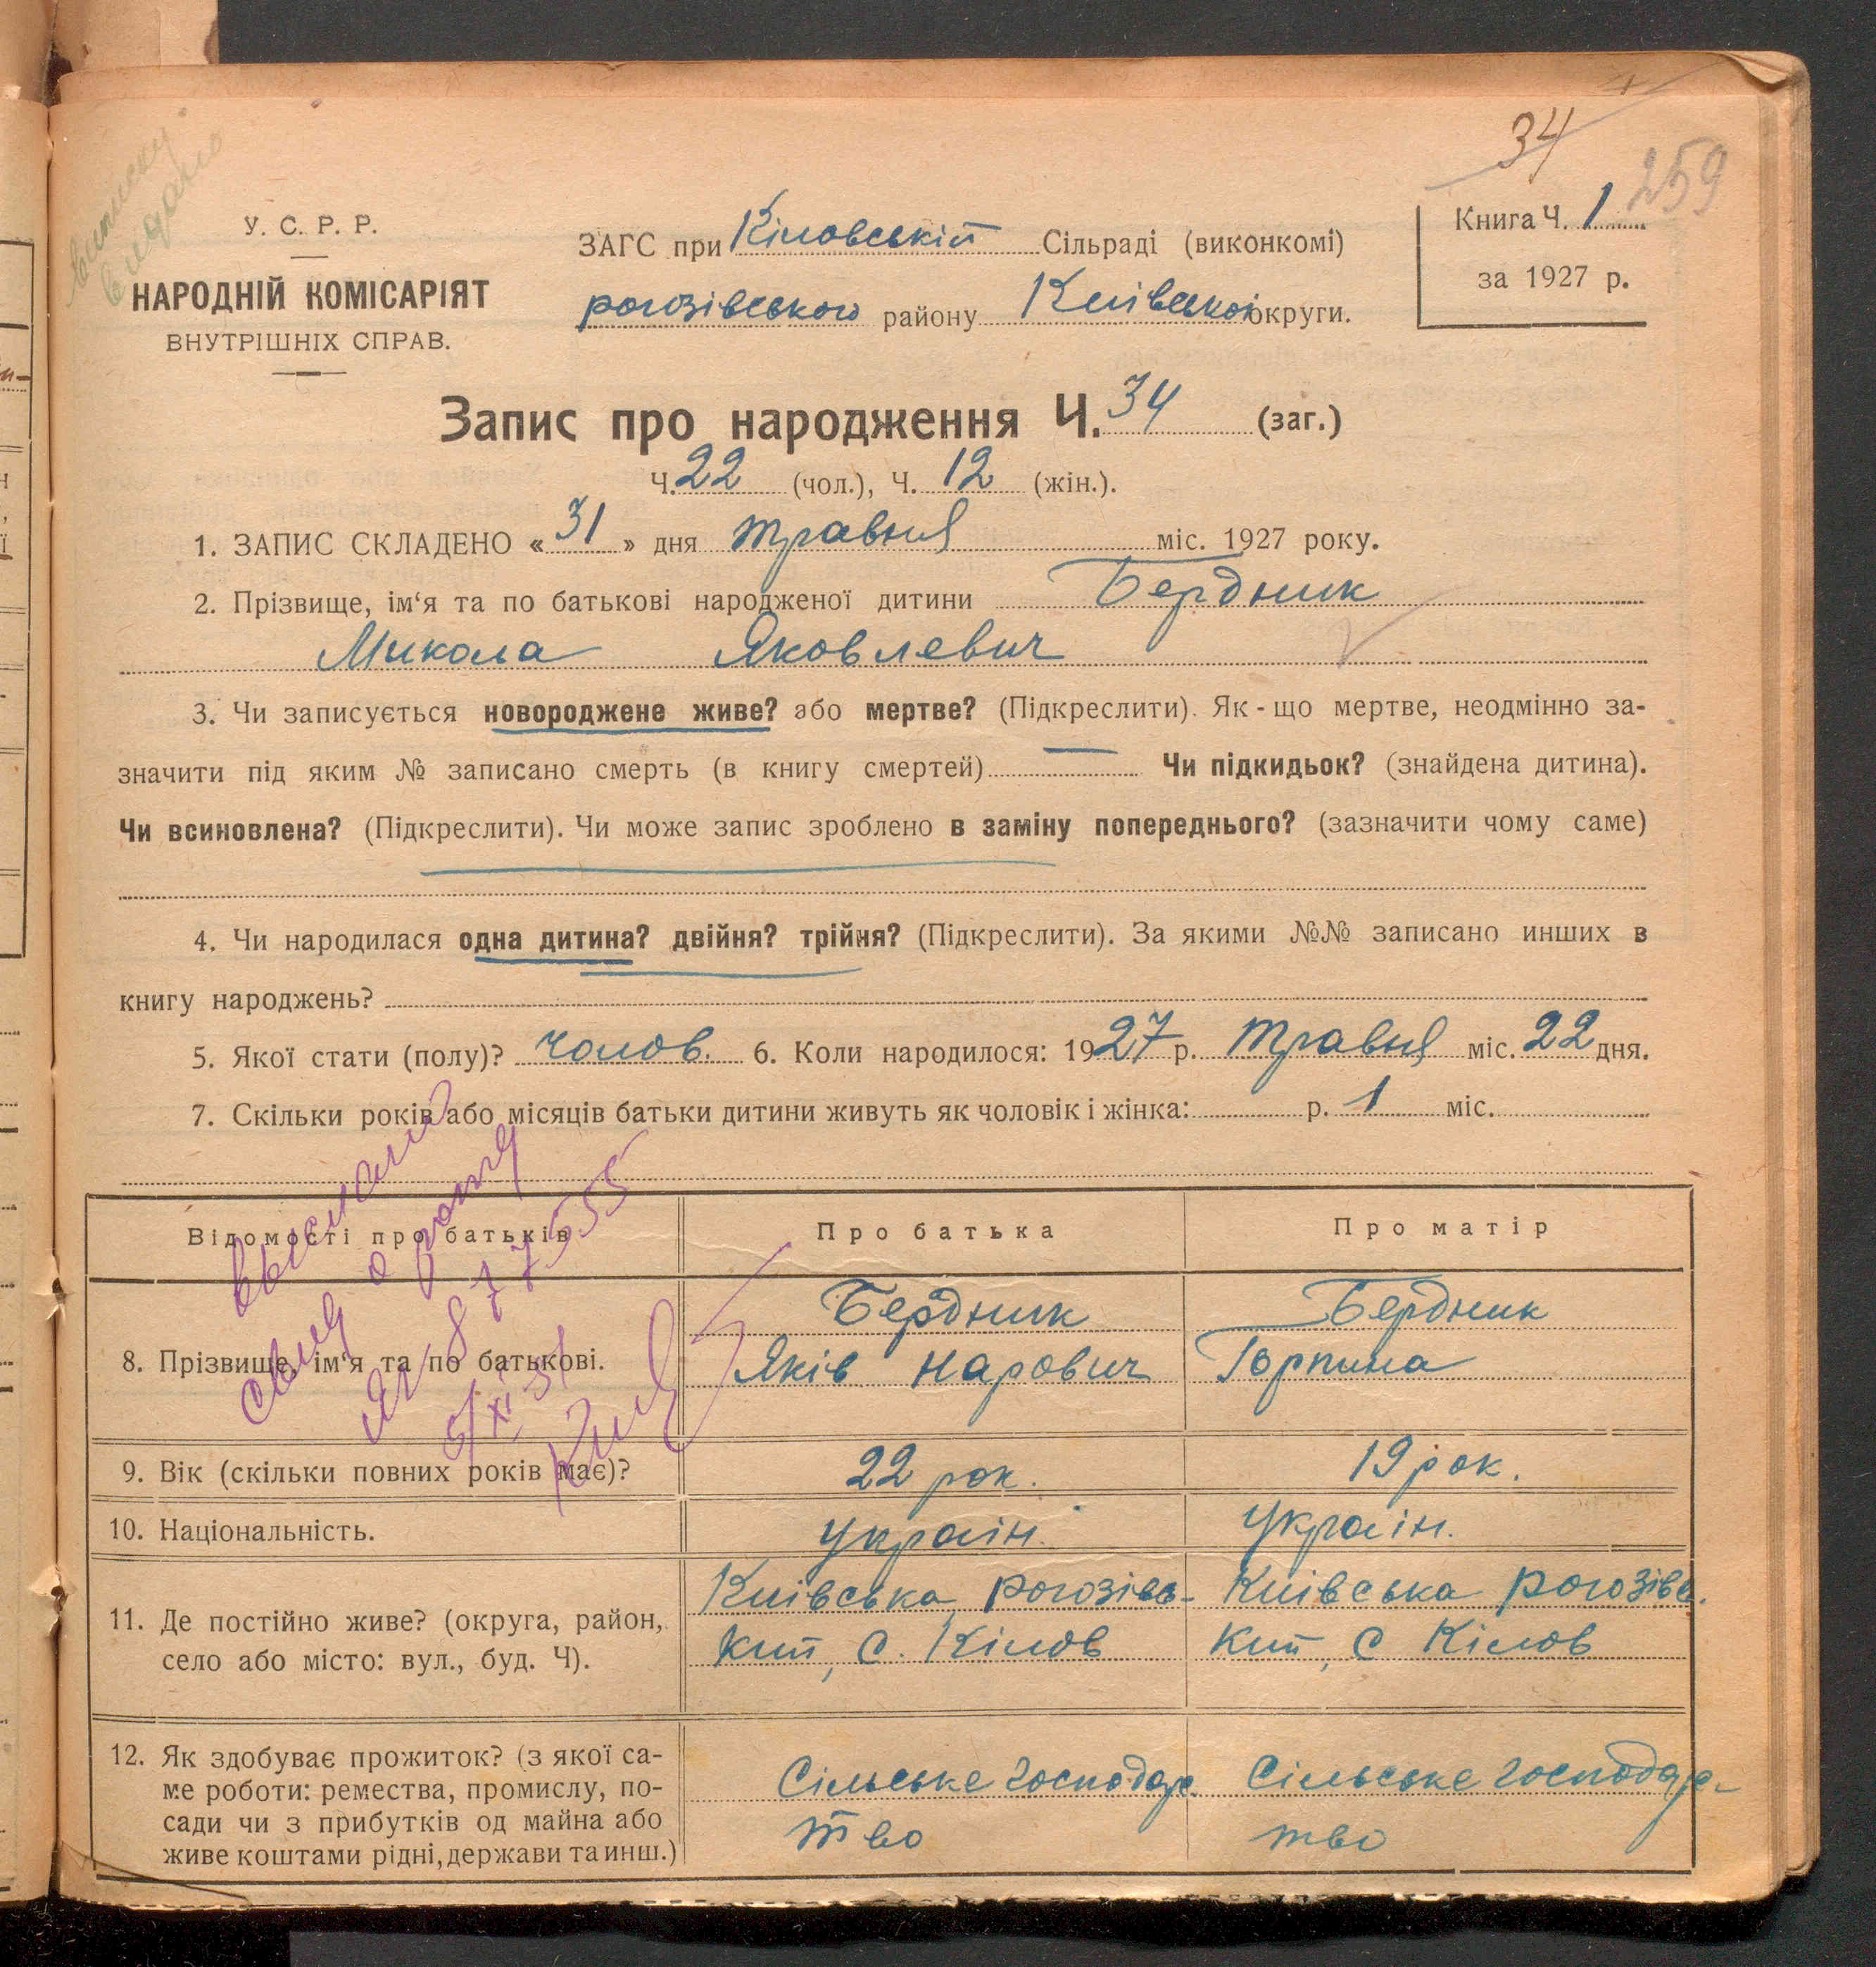 34
259
виписку
видано
У. С. Р. Р.
НАРОДНІЙ КОМІСАРІЯТ
ВНУТРІШНІХ СПРАВ.
ЗАГС при Кіловській Сільраді (виконкомі)
рогозівського району Київської округи.
Книга Ч. 1
за 1927 р.
Запис про народження Ч. 34 (заг.)
Ч. 22 (чол.), Ч. 12 (жін.).
1. ЗАПИС СКЛАДЕНО « 31 » дня травня міс. 1927 року.
2. Прізвище, ім‘я та по батькові народженої дитини Бердник
Микола Яковлевич
3. Чи записується новороджене живе? або мертве? (Підкреслити). Як-що мертве, неодмінно за-
значити під яким № записано смерть (в книгу смертей) — Чи підкидьок? (знайдена дитина).
Чи всиновлена? (Підкреслити). Чи може запис зроблено в заміну попереднього? (зазначити чому саме)
4. Чи народилася одна дитина? двійня? трійня? (Підкреслити). За якими №№ записано инших в
книгу народжень?
5. Якої стати (полу)? Чолов. 6. Коли народилося: 1927 р. Травня міс. 22 дня.
7. Скільки років або місяців батьки дитини живуть як чоловік і жінка: р. 1 міс.
Відомості про батьків
Про батька
Про матір
8. Прізвище, ім‘я та по батькові.
Бердник
Яків Нарович
Бердник
Горпина
9. Вік (скільки повних років має)?
22 рок.
19 рок.
10. Національність.
Україн.
Україн.
11. Де постійно живе? (округа, район,
село або місто: вул., буд. Ч).
Київська, Рогозівсь-
кий, С. Кілов
Київська Рогозівс.
кий, С Кілов
12. Як здобуває прожиток? (з якої са-
ме роботи: ремества, промислу, по-
сади чи з прибутків од майна або
живе коштами рідні, держави та инш.)
Сільське господарс
тво
Сільське господарс-
тво